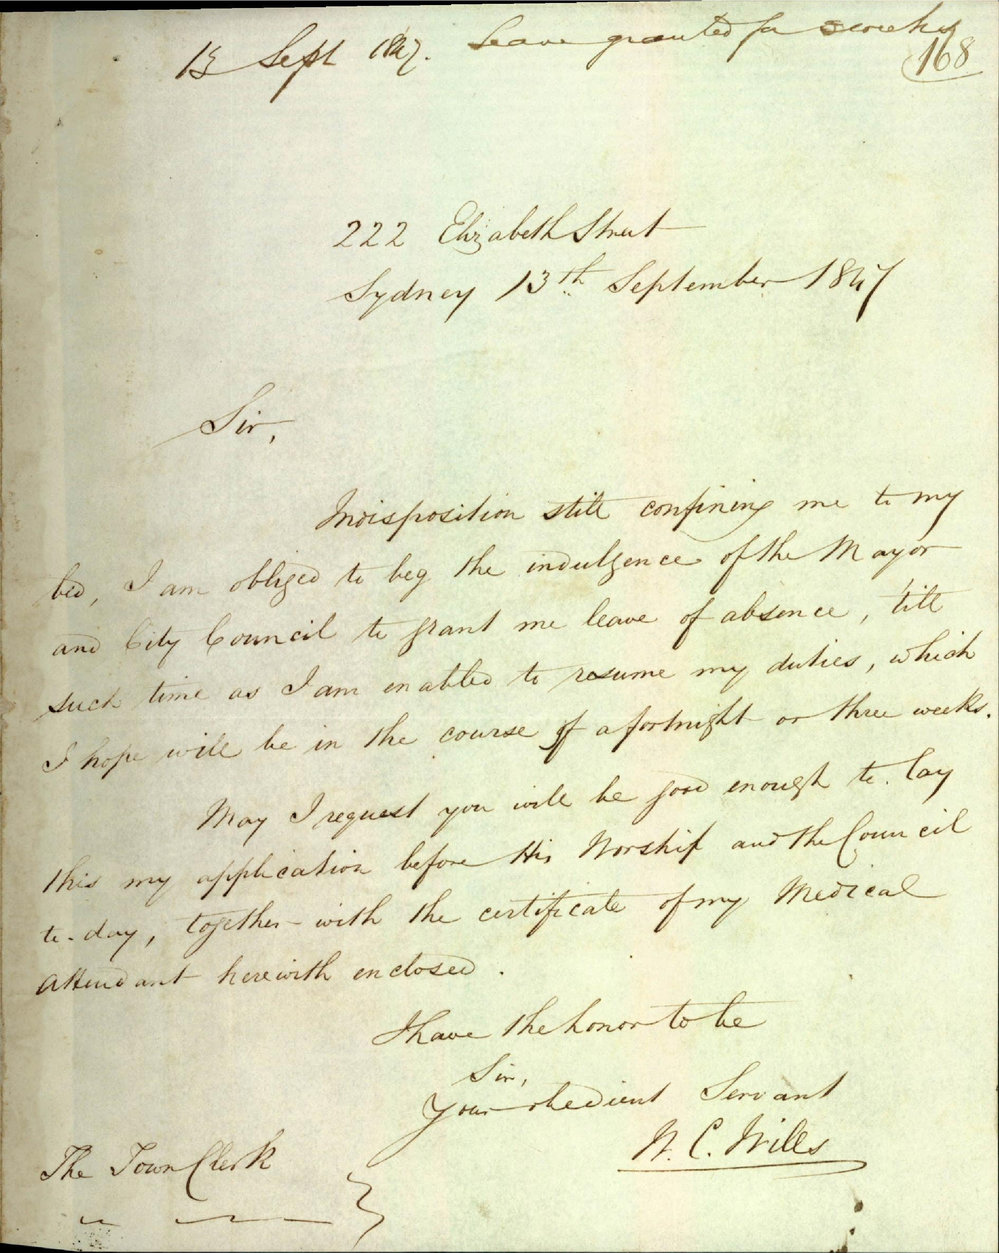 13 Sept 1847. Leave granted for 3 weeks
168
222 Elizabeth Street
Sydney 13th September 1847
Sir,
Indisposition still confining me to my
bed, I am obliged to beg the indulgence of the Mayor
and City Council to grant me leave of absence, till
such time as I am enabled to resume my duties, which
I hope will be in the course of a fortnight or three weeks.
May I request you will be good enough to lay
this my application before His Worship and the Council
to-day, together with the certificate of my Medical
Attendant herewith enclosed.
I have the honor to be
Sir,
Your obedient Servant
W. C. Wills
The Town Clerk